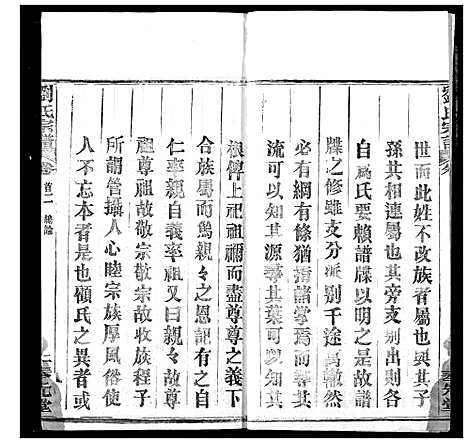 世而此姓不改族者屬也與其子
孫其相連屬也其旁支別出則各
自爲氏要賴譜牒以明之是故譜
牒之修雖支分派别千途萬轍然
必有綱有條猶指諸掌焉而剛其
流可以知其源尋其葉可以知其
根俾上祀祖禰而盡尊尊之義下
合族屬而篤親々之恩記有之自
仁率親自義率祖又曰親々故尊
祖尊祖故敬宗敬宗故收族程子
所謂管攝人心睦宗族厚風俗使
人不忘本者是也顧氏之異者或
劉氏宗譜
卷首二
總論